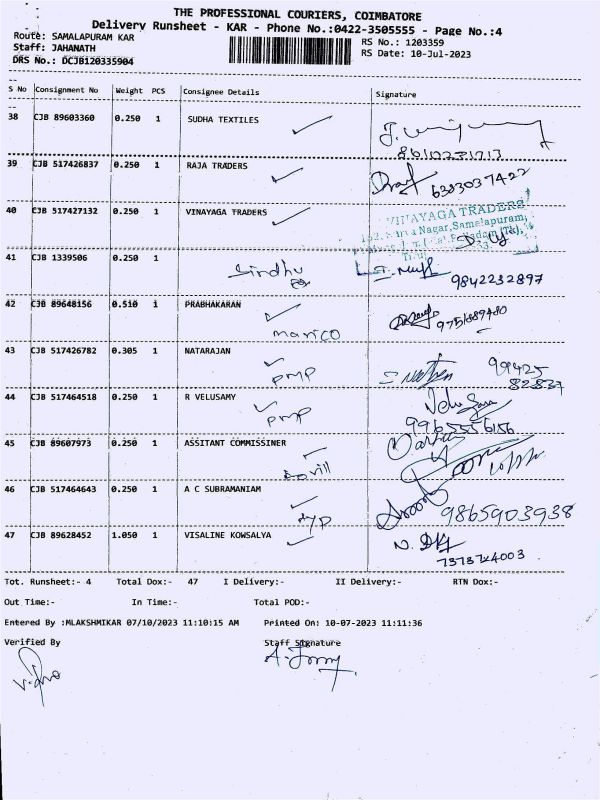 THE PROFESSIONAL COURIERS, COIMBATORE
Delivery Runsheet - KAR - Phone No.:0422-3505555 - Page No.:4
Route: SAMALAPURAM KAR
RS No.: 1203359
Staff: JAHANATH
RS Date: 10-Jul-2023
DRS No.: DCJB120335904
S No Consignment No Weight PCS Consignee Details Signature
38 CJB 89603360 0.250 1 SUDHA TEXTILES
8610231713
39 CJB 517426837 0.250 1 RAJA TRADERS
6383037422
40 CJB 517427132 0.250 1 VINAYAGA TRADERS
VINAYAGA TRADERS
Nagar, Samalapuram,
41 CJB 1339506 0.250 1
Sindhu
9842232897
42 CJB 89648156 0.510 1 PRABHAKARAN
marico
43 CJB 517426782 0.305 1 NATARAJAN
pmp
99425
82837
44 CJB 517464518 0.250 1 R VELUSAMY
pmp
9965556156
45 CJB 89607973 0.250 1 ASSITANT COMMISSINER
46 CJB 517464643 0.250 1 A C SUBRAMANIAM
9865903938
47 CJB 89628452 1.050 1 VISALINE KOWSALYA
7373724003
Tot. Runsheet:- 4 Total Dox:- 47 I Delivery:- II Delivery:- RTN Dox:-
Out Time:- In Time:- Total POD:-
Entered By :MLAKSHMIKAR 07/10/2023 11:10:15 AM Printed On: 10-07-2023 11:11:36
Verified By Staff Signature